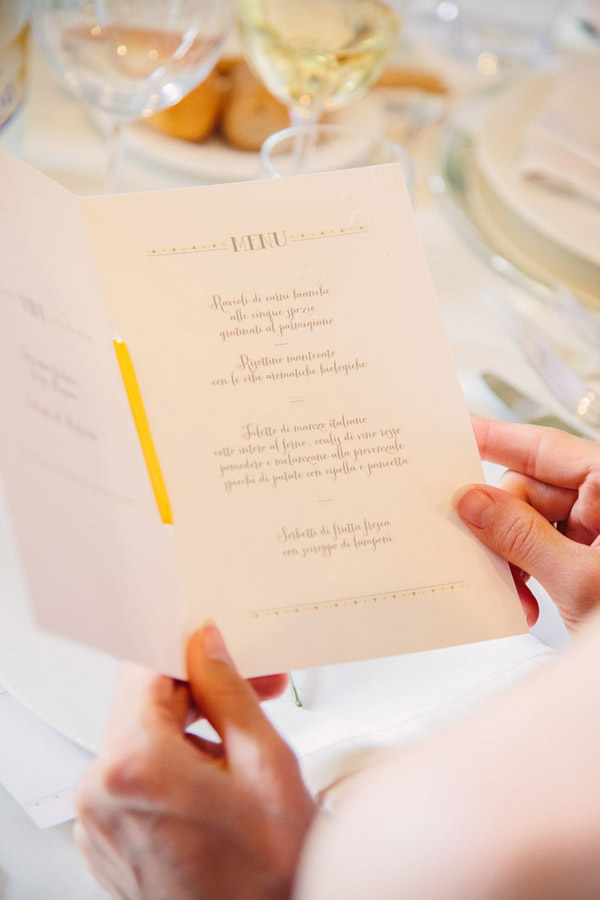 MENU
Ravioli di carni bianche
alle cinque spezie
gratinati al parmigiano
Risottino mantecato
con le erbe aromatiche biologiche
Filetto di manzo italiano
cotto intero al forno, coulis di vino rosso
pomodoro e melanzane alla provenzale
spicchi di patate con cipolla e pancetta
Sorbetti di frutta fresca
con sciroppo di lamponi